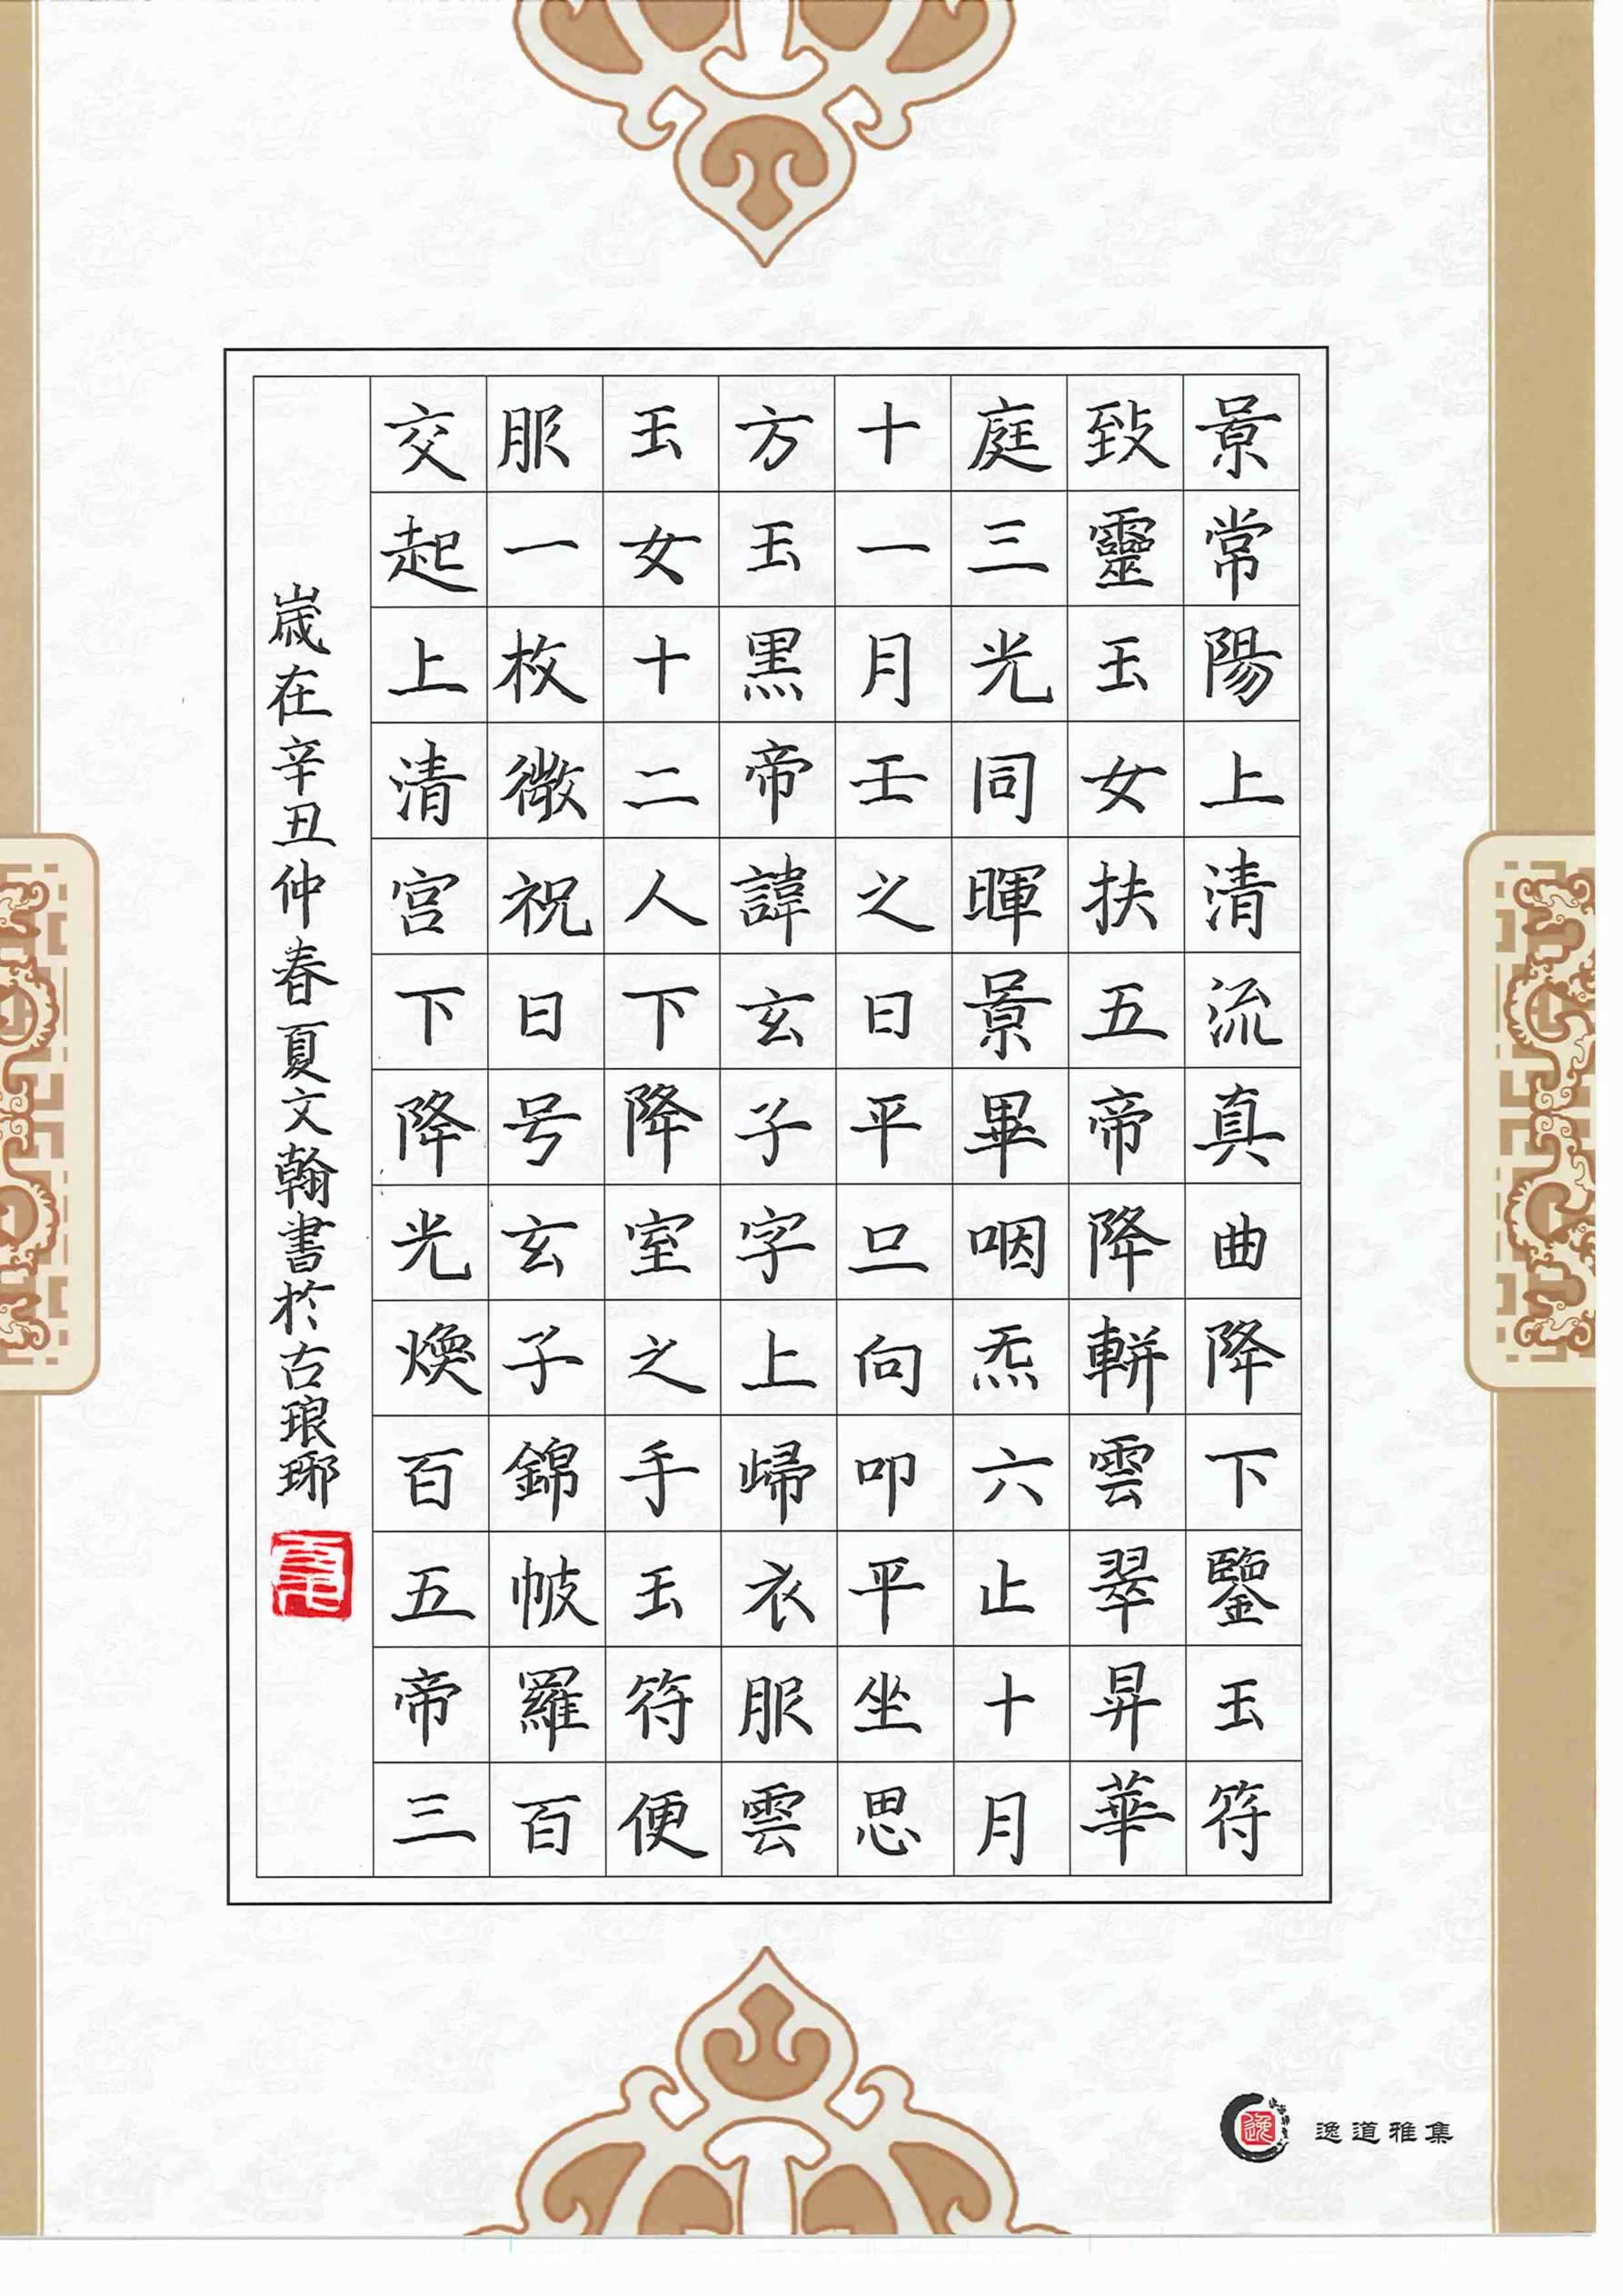 景常陽上清流真曲降下鑒玉符
致靈玉女扶五帝降軿雲翠昇華
庭三光同暉景畢咽炁六止十月
十一月壬之日平旦向叩平坐思
方玉黑帝諱玄子字上歸衣服雲
玉女十二人下降室之手玉符便
服一枚微祝曰号玄子錦帔羅百
交起上清宫下降光煥百五帝三
歲在辛丑仲春夏文翰書於古琅琊
逸道雅集